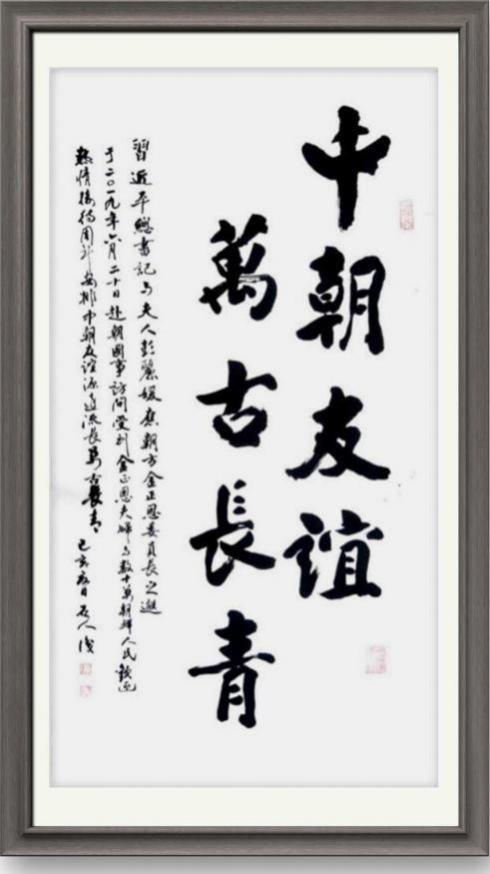 中朝友谊
萬古長青
習近平總書記与夫人彭麗媛應朝方金正恩委員長之邀
于二〇一九年六月二十日赴朝國事訪問受到金正恩夫婦与數十萬朝鮮人民歡迎
熱情接待周到安排中朝友谊源遠流長萬古長青
己亥 石人